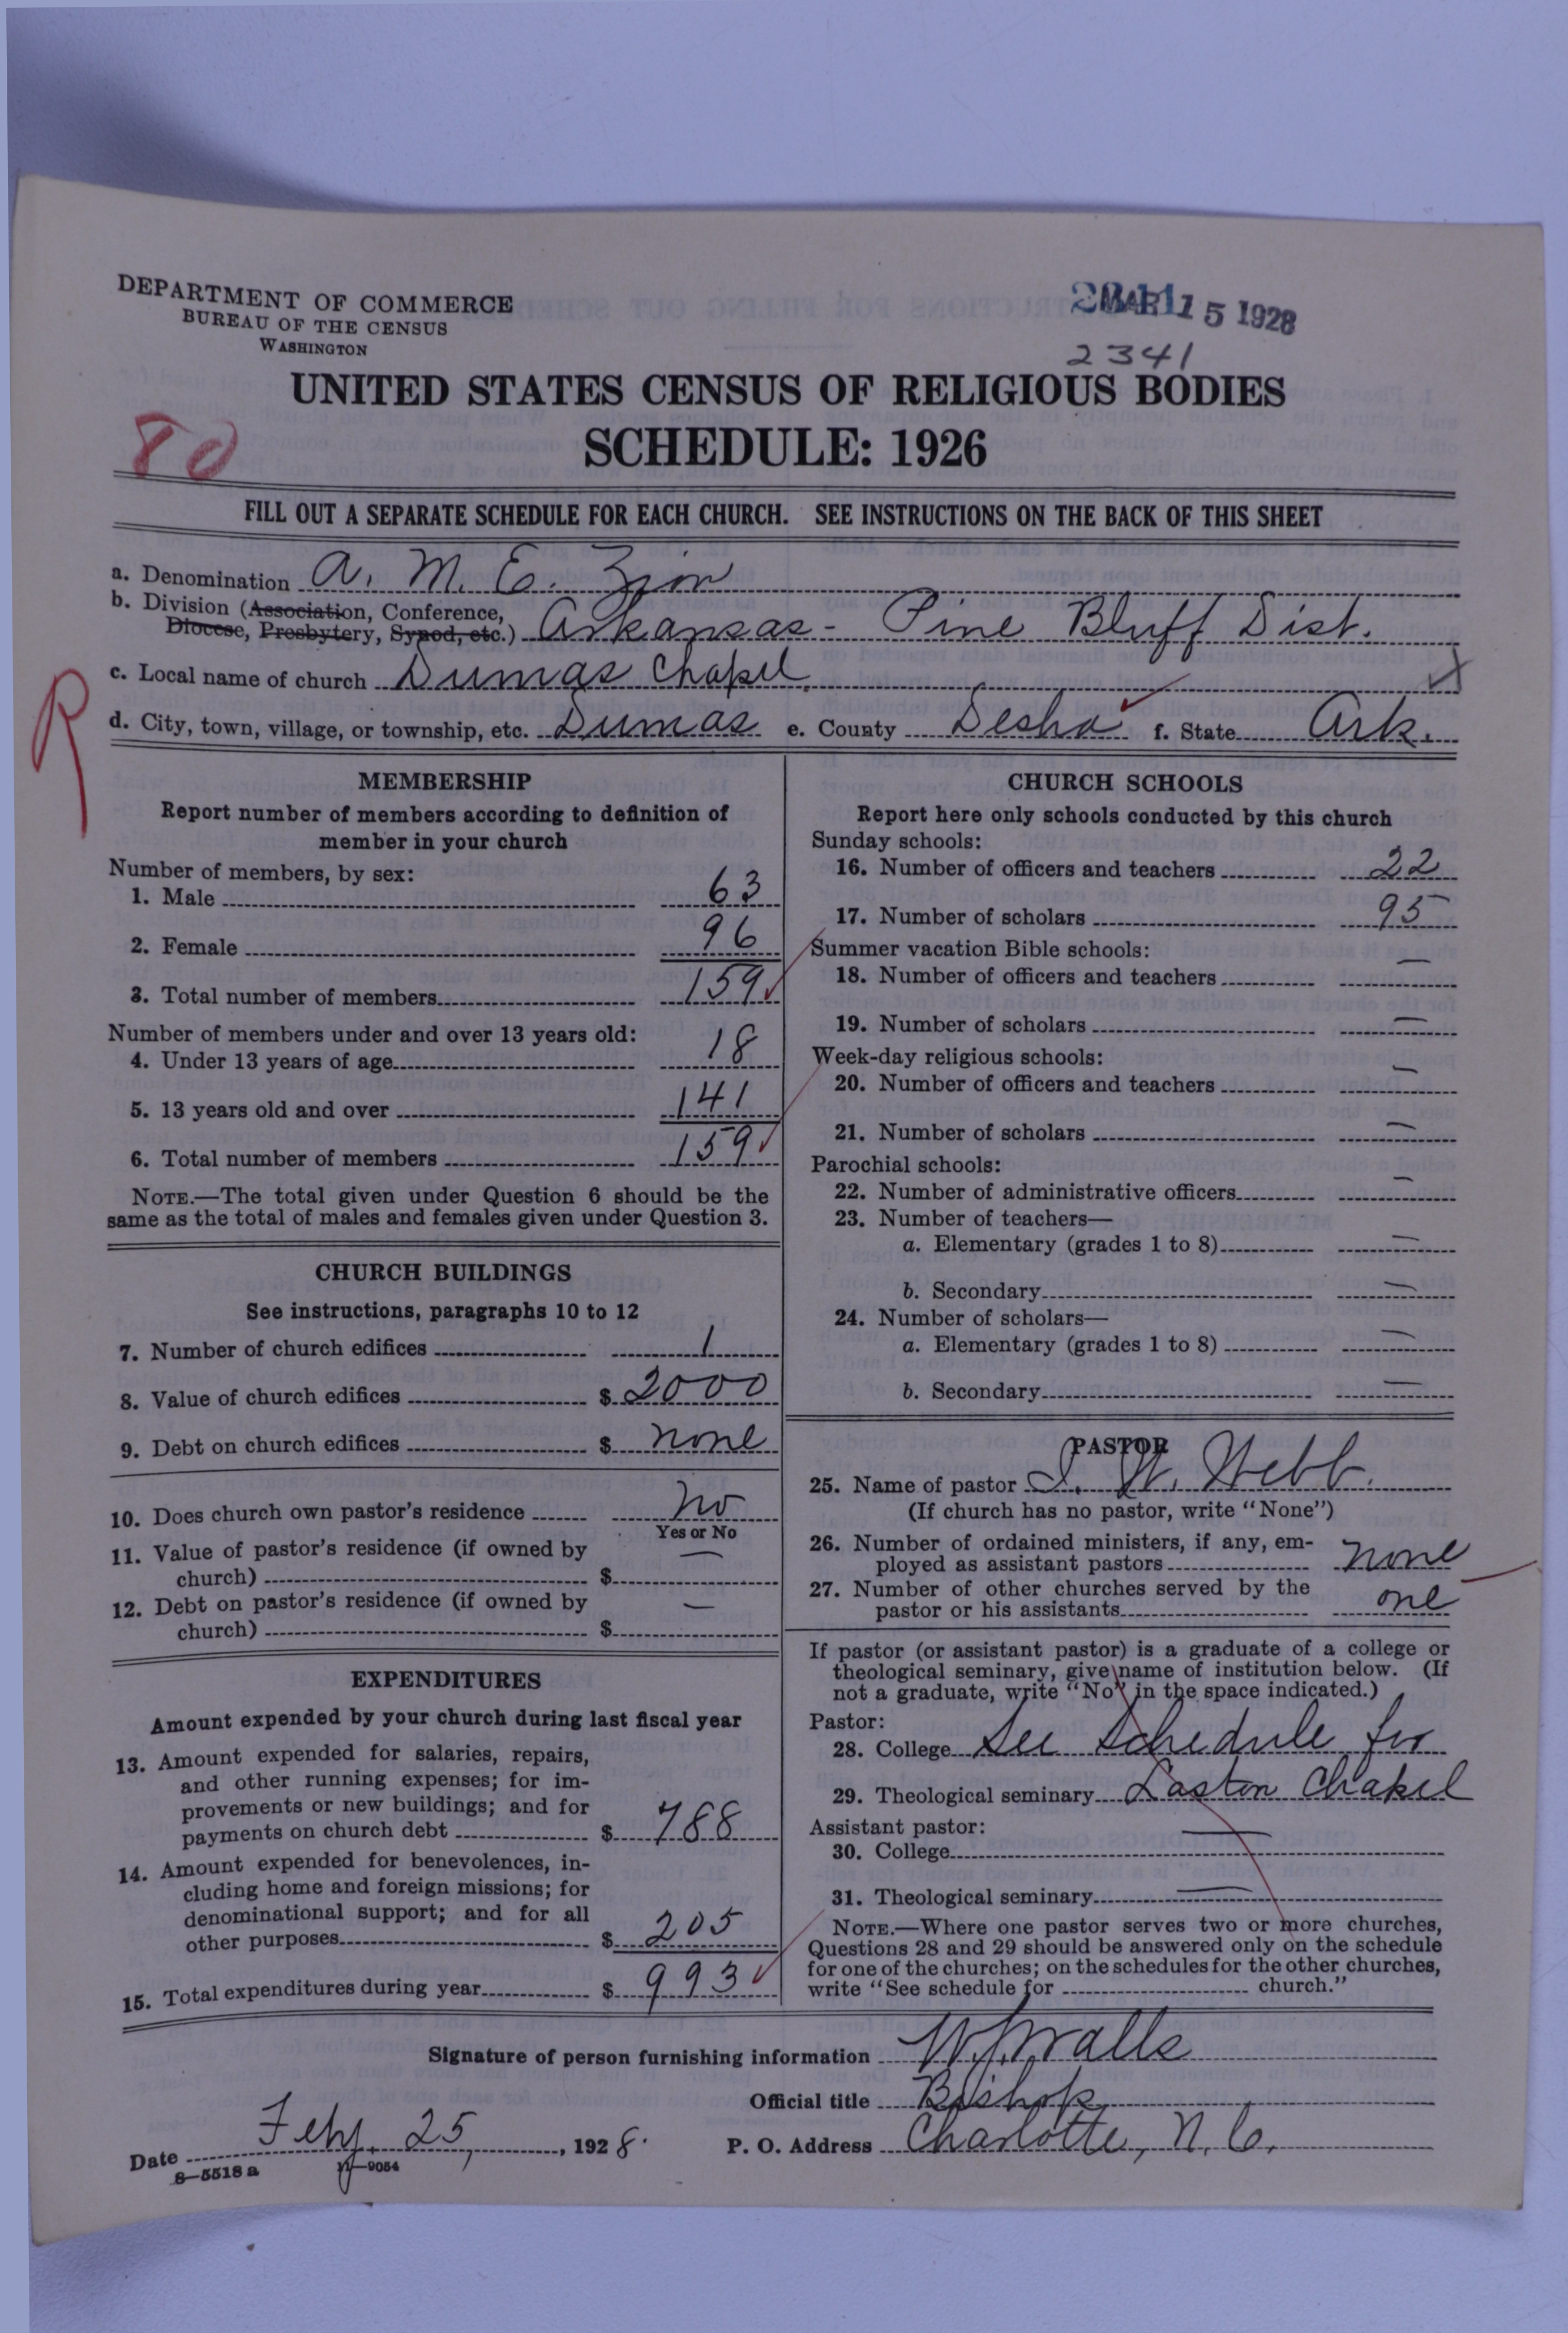 DEPARTMENT OF COMMERCE
BUREAU OF THE CENSUS
WASHINGTON
MAR 15 1928
2341
UNITED STATES CENSUS OF RELIGIOUS BODIES
SCHEDULE: 1926
80
FILL OUT A SEPARATE SCHEDULE FOR EACH CHURCH. SEE INSTRUCTIONS ON THE BACK OF THIS SHEET
a. Denomination A. M. E. Zion
b. Division (Association, Conference,
Diocese, Presbytery, Synod, etc.) Arkansas - Pine Bluff Dist.
R
c. Local name of church Dumas Chapel
d. City, town, village, or township, etc. Dumas e. County Desha f. State Ark.
MEMBERSHIP
Report number of members according to definition of
member in your church
Number of members, by sex:
1. Male 63
2. Female 96
3. Total number of members 159
Number of members under and over 13 years old:
4. Under 13 years of age 18
5. 13 years old and over 141
6. Total number of members 159
NOTE.—The total given under Question 6 should be the
same as the total of males and females given under Question 3.
CHURCH BUILDINGS
See instructions, paragraphs 10 to 12
7. Number of church edifices 1
8. Value of church edifices $ 2000
9. Debt on church edifices $ none
10. Does church own pastor's residence no
Yes or No
11. Value of pastor's residence (if owned by
church) $ —
12. Debt on pastor's residence (if owned by
church) $ —
EXPENDITURES
Amount expended by your church during last fiscal year
13. Amount expended for salaries, repairs,
and other running expenses; for im-
provements or new buildings; and for
payments on church debt $ 788
14. Amount expended for benevolences, in-
cluding home and foreign missions; for
denominational support; and for all
other purposes $ 205
15. Total expenditures during year $ 993
CHURCH SCHOOLS
Report here only schools conducted by this church
Sunday schools:
16. Number of officers and teachers 22
17. Number of scholars 95
Summer vacation Bible schools:
18. Number of officers and teachers —
19. Number of scholars —
Week-day religious schools:
20. Number of officers and teachers —
21. Number of scholars —
Parochial schools:
22. Number of administrative officers —
23. Number of teachers—
a. Elementary (grades 1 to 8) —
b. Secondary —
24. Number of scholars—
a. Elementary (grades 1 to 8) —
b. Secondary —
PASTOR
25. Name of pastor I. W. Webb.
(If church has no pastor, write "None")
26. Number of ordained ministers, if any, em-
ployed as assistant pastors none
27. Number of other churches served by the
pastor or his assistants one
If pastor (or assistant pastor) is a graduate of a college or
theological seminary, give name of institution below. (If
not a graduate, write "No" in the space indicated.)
Pastor:
28. College See Schedule for
29. Theological seminary Laston Chapel
Assistant pastor:
30. College —
31. Theological seminary —
NOTE.—Where one pastor serves two or more churches,
Questions 28 and 29 should be answered only on the schedule
for one of the churches; on the schedules for the other churches,
write "See schedule for church."
Signature of person furnishing information W. J. Walls
Official title Bishop
Date Feby. 25, 1928. P. O. Address Charlotte, N. C.
8—5518 a 11—9054